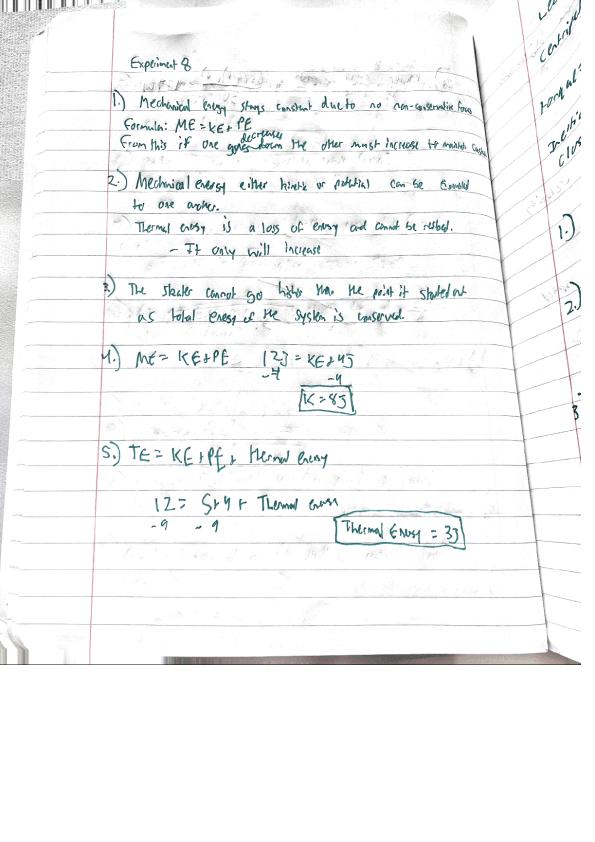 Experiment 8
1.) Mechanical energy stays constant due to no non-conservative forces
Formula: ME = KE + PE
decreases
From this if one goes down the other must increase to maintain
2.) Mechanical energy either kinetic or potential can be converted
to one another.
Thermal energy is a loss of energy and cannot be
- It only will increase
3.) The skater cannot go higher than the point it started out
as total energy of the system is conserved.
4.) ME = KE + PE 12J = KE + 4J
-4 -4
K = 8J
5.) TE = KE + PE + thermal energy
12 = 5 + 4 + Thermal energy
-9 -9
Thermal Energy = 3J
Centripetal
1.)
2.)
3